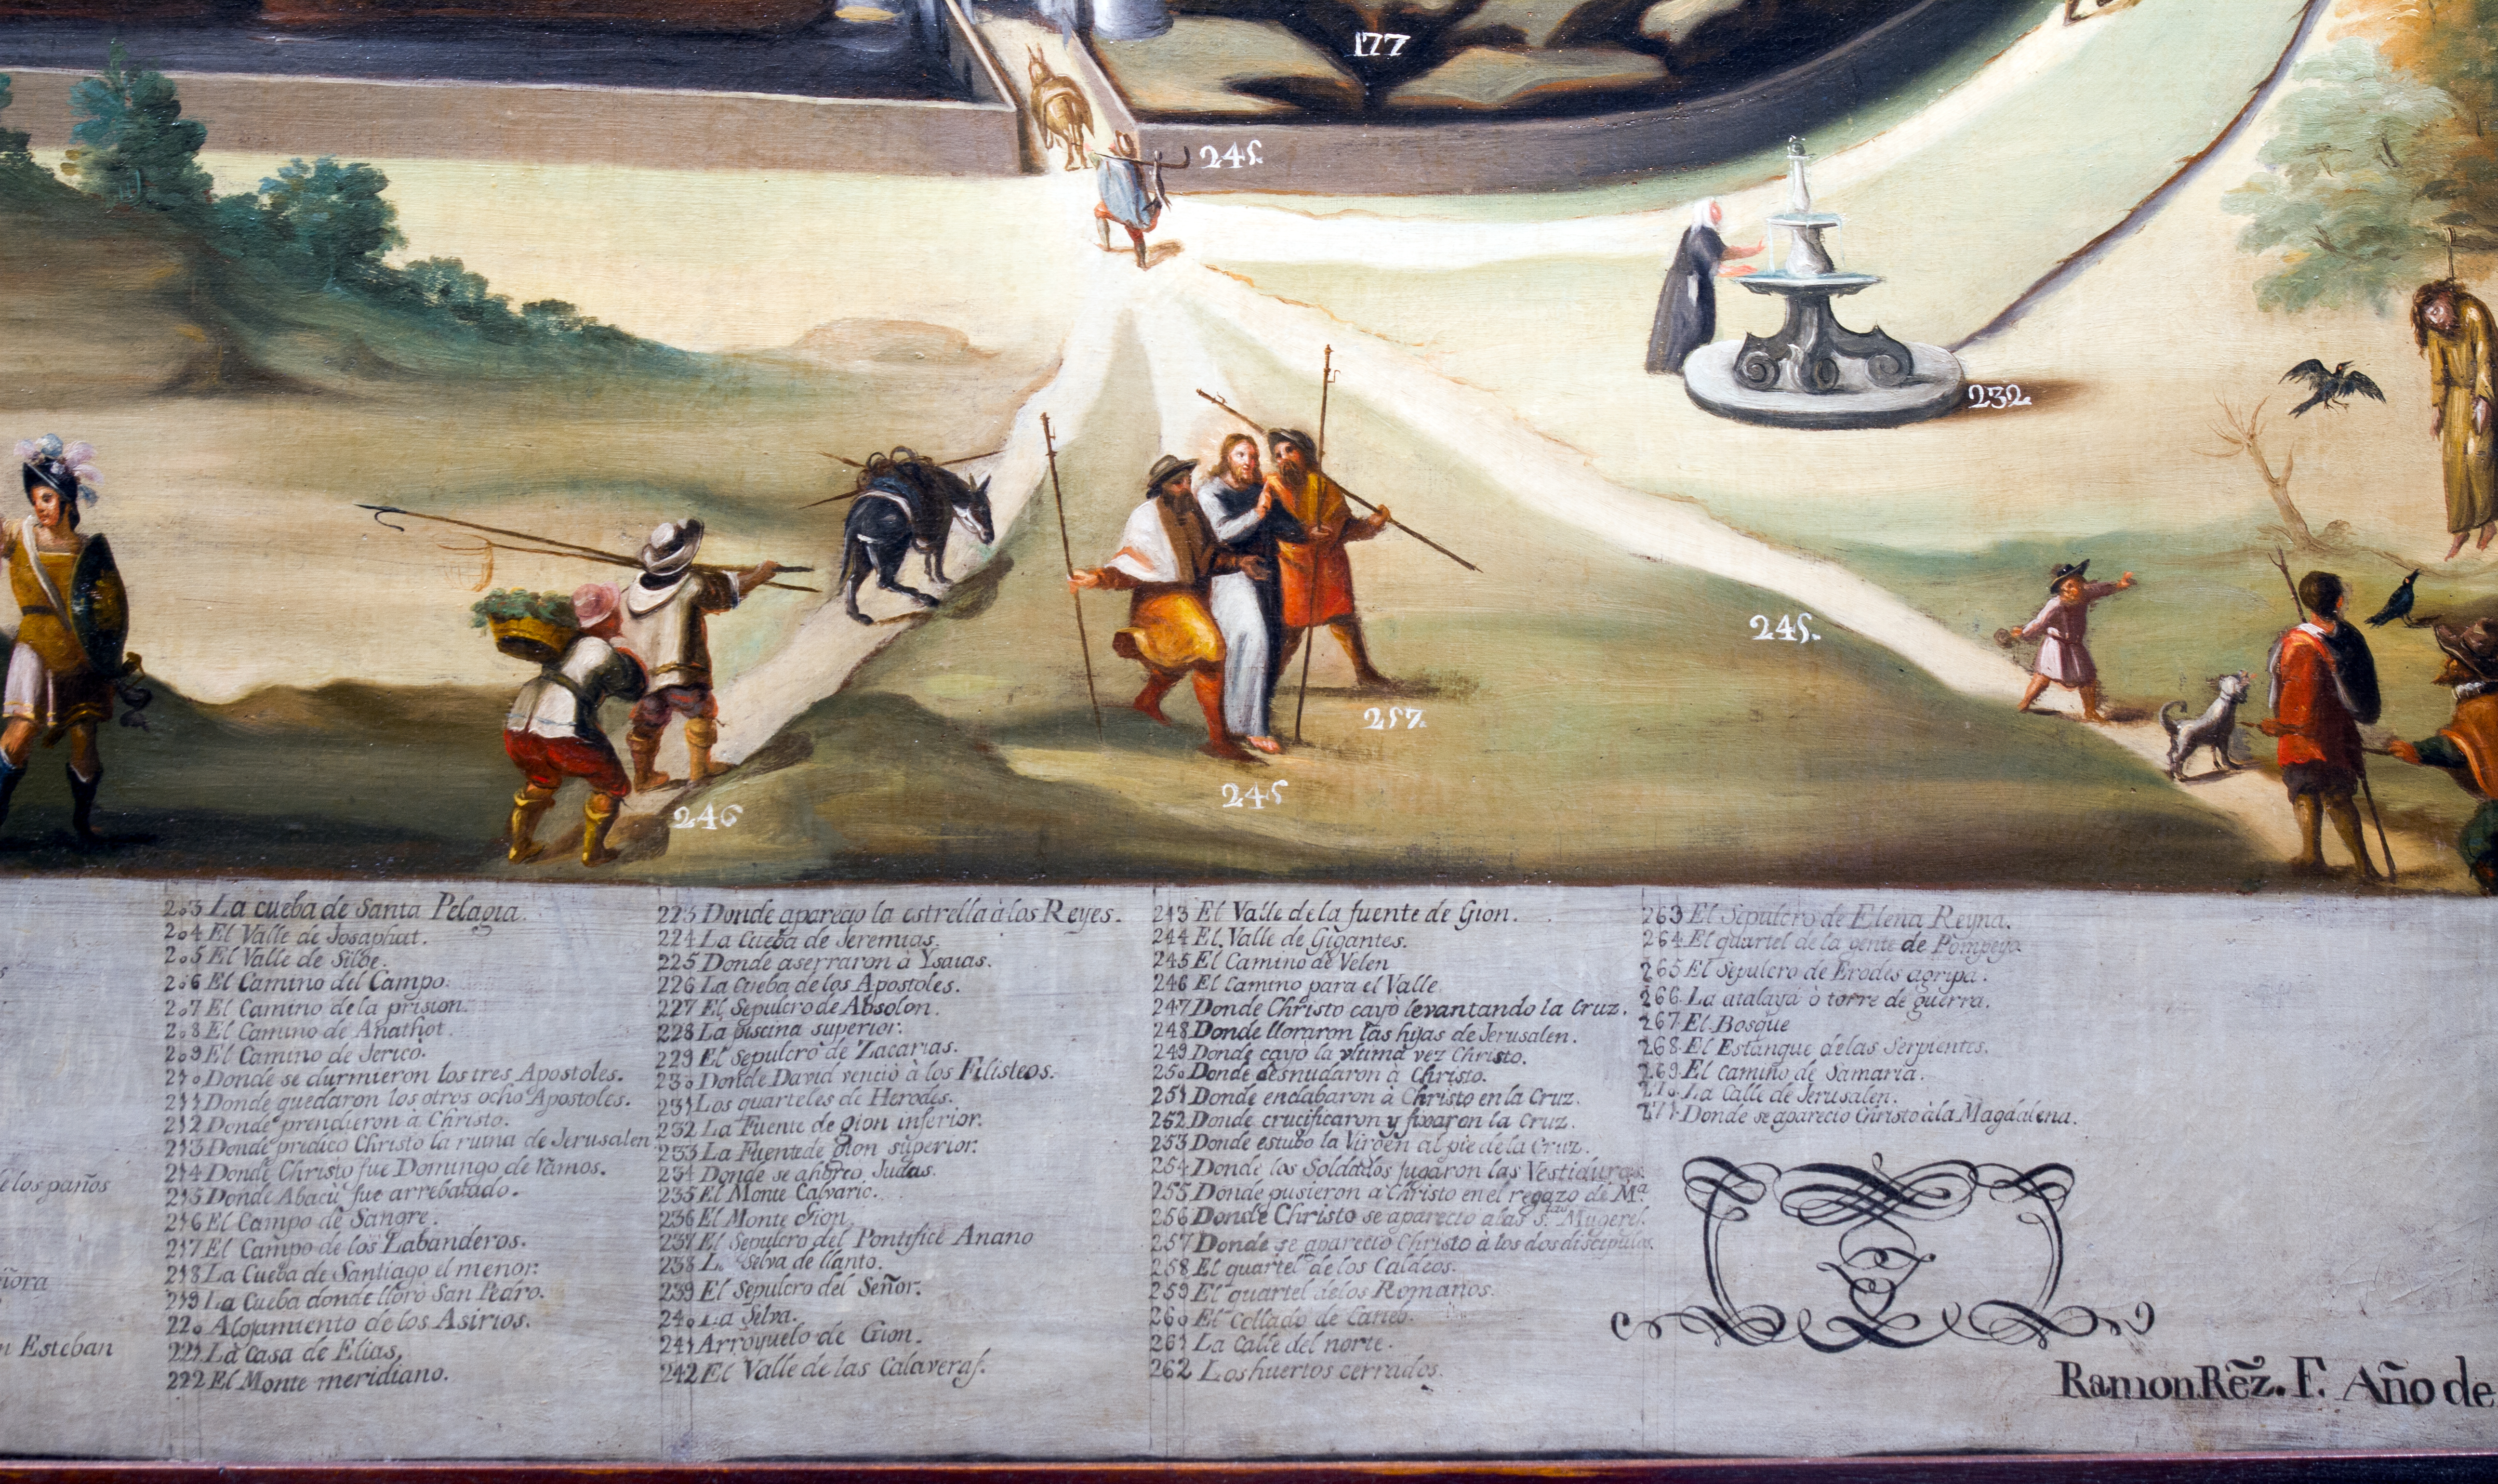 177
245.
232.
245.
257.
245
246
elos paños
ñora
n Esteban
203 La cueba de Santa Pelagia.
204 El Valle de Josaphat.
205 El Valle de Siloe.
206 El Camino del Campo.
207 El Camino de la prision.
208 El Camino de Anathot.
209 El Camino de Jericò.
210 Donde se durmieron los tres Apostoles.
211 Donde quedaron los otros ocho Apostoles.
212 Donde prendieron à Christo.
213 Donde predico Christo la ruina de Jerusalen
214 Donde Christo fue Domingo de ramos.
215 Donde Abacù fue arrebatado.
216 El Campo de Sangre.
217 El Campo de los Labanderos.
218 La Cueba de Santiago el menor.
219 La Cueba donde lloró San Pedro.
220 Alojamiento de los Asirios.
221 La casa de Elias,
222 El Monte meridiano.
223 Donde aparecio la estrella à los Reyes.
224 La Cueba de Jeremias.
225 Donde aserraron à Ysaias.
226 La Cueba de los Apostoles.
227 El Sepulcro de Absolon.
228 La piscina superior.
229 El Sepulcro de Zacarias.
230 Donde David venciò à los Filisteos.
231 Los quarteles de Herodes.
232 La Fuente de gion inferior.
233 La Fuente de gion superior.
234 Donde se ahorco Judas.
235 El Monte Calvario.
236 El Monte Gion,
237 El Sepulcro del Pontifice Anano
238 La Selva de llanto.
239 El Sepulcro del Señor.
240 La Selva.
241 Arroyuelo de Gion.
242 El Valle de las Calaveras.
243 El Valle de la fuente de Gion.
244 El Valle de Gigantes.
245 El Camino de Velen
246 El Camino para el Valle
247 Donde Christo cayò levantando la Cruz.
248 Donde lloraron las hijas de Jerusalen.
249 Donde cayò la vltima vez Christo.
250 Donde desnudaron à Christo.
251 Donde enclabaron à Christo en la Cruz.
252 Donde crucificaron y fixaron la Cruz.
253 Donde estubo la Virgen al pie de la Cruz.
254 Donde los Soldados jugaron las Vestiduras.
255 Donde pusieron a Christo en el regazo de Mª
256 Donde Christo se aparecio a las s.tas Mugeres.
257 Donde se aparecio Christo à los dos discipulos.
258 El quartel de los Caldeos.
259 El quartel de los Romanos.
260 El Collado de Careb.
261 La Calle del norte.
262 Los huertos cerrados.
263 El Sepulcro de Elena Reyna.
264 El quartel de la gente de Pompeyo
265 El Sepulcro de Erodes agripa.
266 La atalaya ò torre de guerra.
267 El Bosque
268 El Estanque de las Serpientes.
269 El camino de Samaria.
270 La Calle de Jerusalen.
271 Donde se aparecio Christo à la Magdalena.
Ramon Rẽz. F. Año de